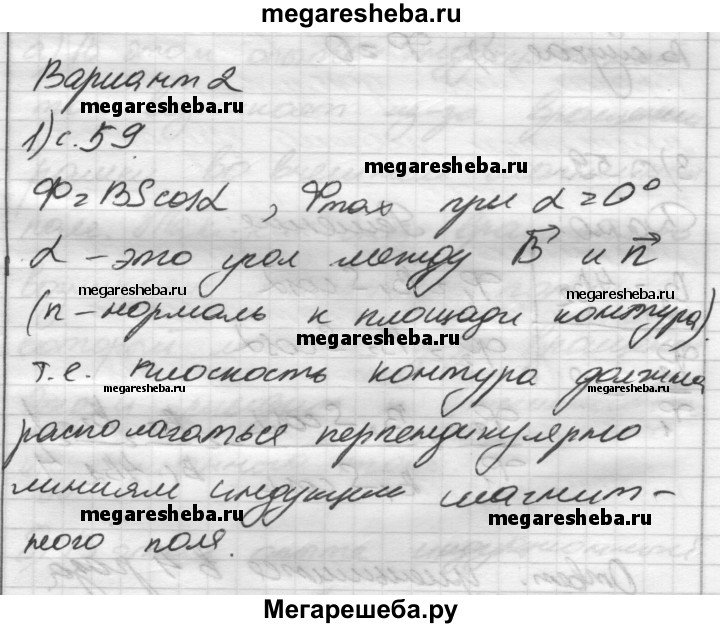 megaresheba.ru
Вариант 2
megaresheba.ru
1) с. 59
megaresheba.ru
Φ = BS cosα , Φmax при α = 0°
α - это угол между B⃗ и n⃗
megaresheba.ru megaresheba.ru
(n - нормаль к площади контура).
megaresheba.ru
т.е. плоскость контура должна
megaresheba.ru megaresheba.ru
располагаться перпендикулярно
линиям индукции магнит-
megaresheba.ru megaresheba.ru
ного поля.
Мегарешеба.ру